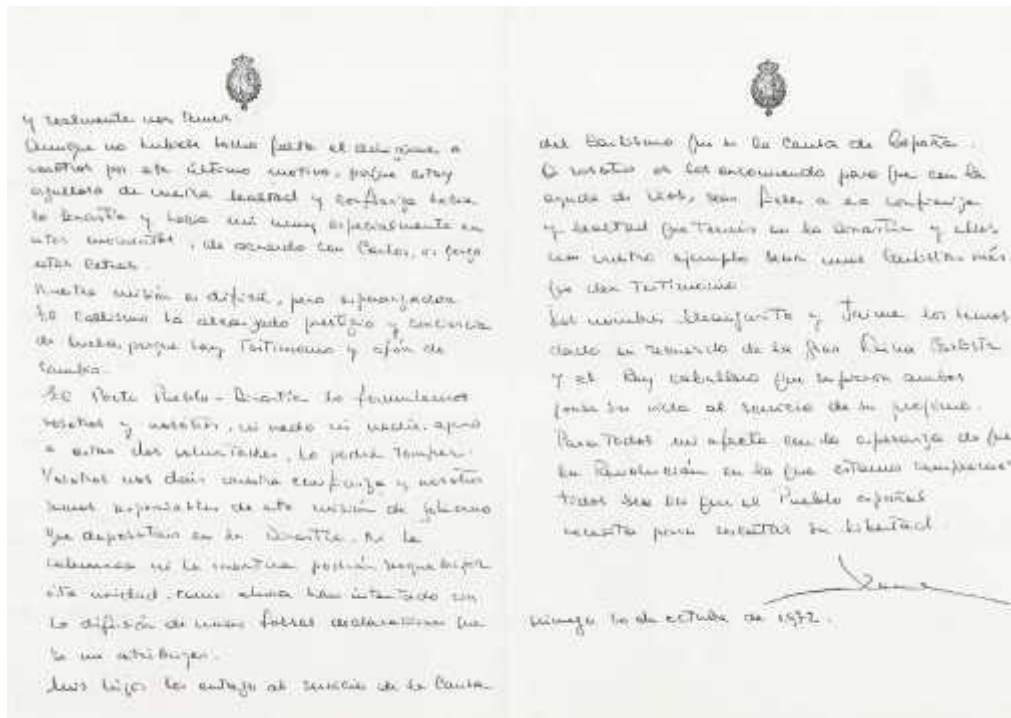 y realmente nos
Aunque no hubiese hecho falta el dirigirme a
vosotros por este último motivo, porque estoy
orgullosa de vuestra lealtad y confianza hacia
la Dinastía y hacia mí muy especialmente en
estos momentos, de acuerdo con Carlos, os pongo
estas letras.
Nuestra misión es difícil, pero esperanzadora.
El Carlismo ha alcanzado prestigio y conciencia
de lucha porque hay Testimonio y afán de
cambio.
El Pacto Pueblo-Dinastía lo formulamos
vosotros y nosotros, ni nada ni nadie, ajeno
a estas dos voluntades, lo podrá romper.
Vosotros nos dais vuestra confianza y nosotros
somos responsables de esta misión de gobierno
que depositáis en la Dinastía. Ni la
calumnia ni la mentira podrán resquebrajar
esta unidad, como ahora han intentado con
la difusión de unas falsas declaraciones que
se me atribuyen.
Mis hijos los entrego al servicio de la Causa
del Carlismo que es la Causa de España.
A vosotros os los encomiendo para que con la
ayuda de Dios, sean fieles a esa confianza
y lealtad que tenéis en la Dinastía y ellos
con vuestro ejemplo sean unos Carlistas más
que den Testimonio.
Los nombres Margarita y Jaime los hemos
dado en recuerdo de la gran Reina Carlista
y el Rey caballero que supieron ambos
poner su vida al servicio de su prójimo.
Para Todos mi afecto con la esperanza de que
la Revolución en la que estamos
todos sea la que el Pueblo español
necesita para su libertad.
10 de octubre de 1972.